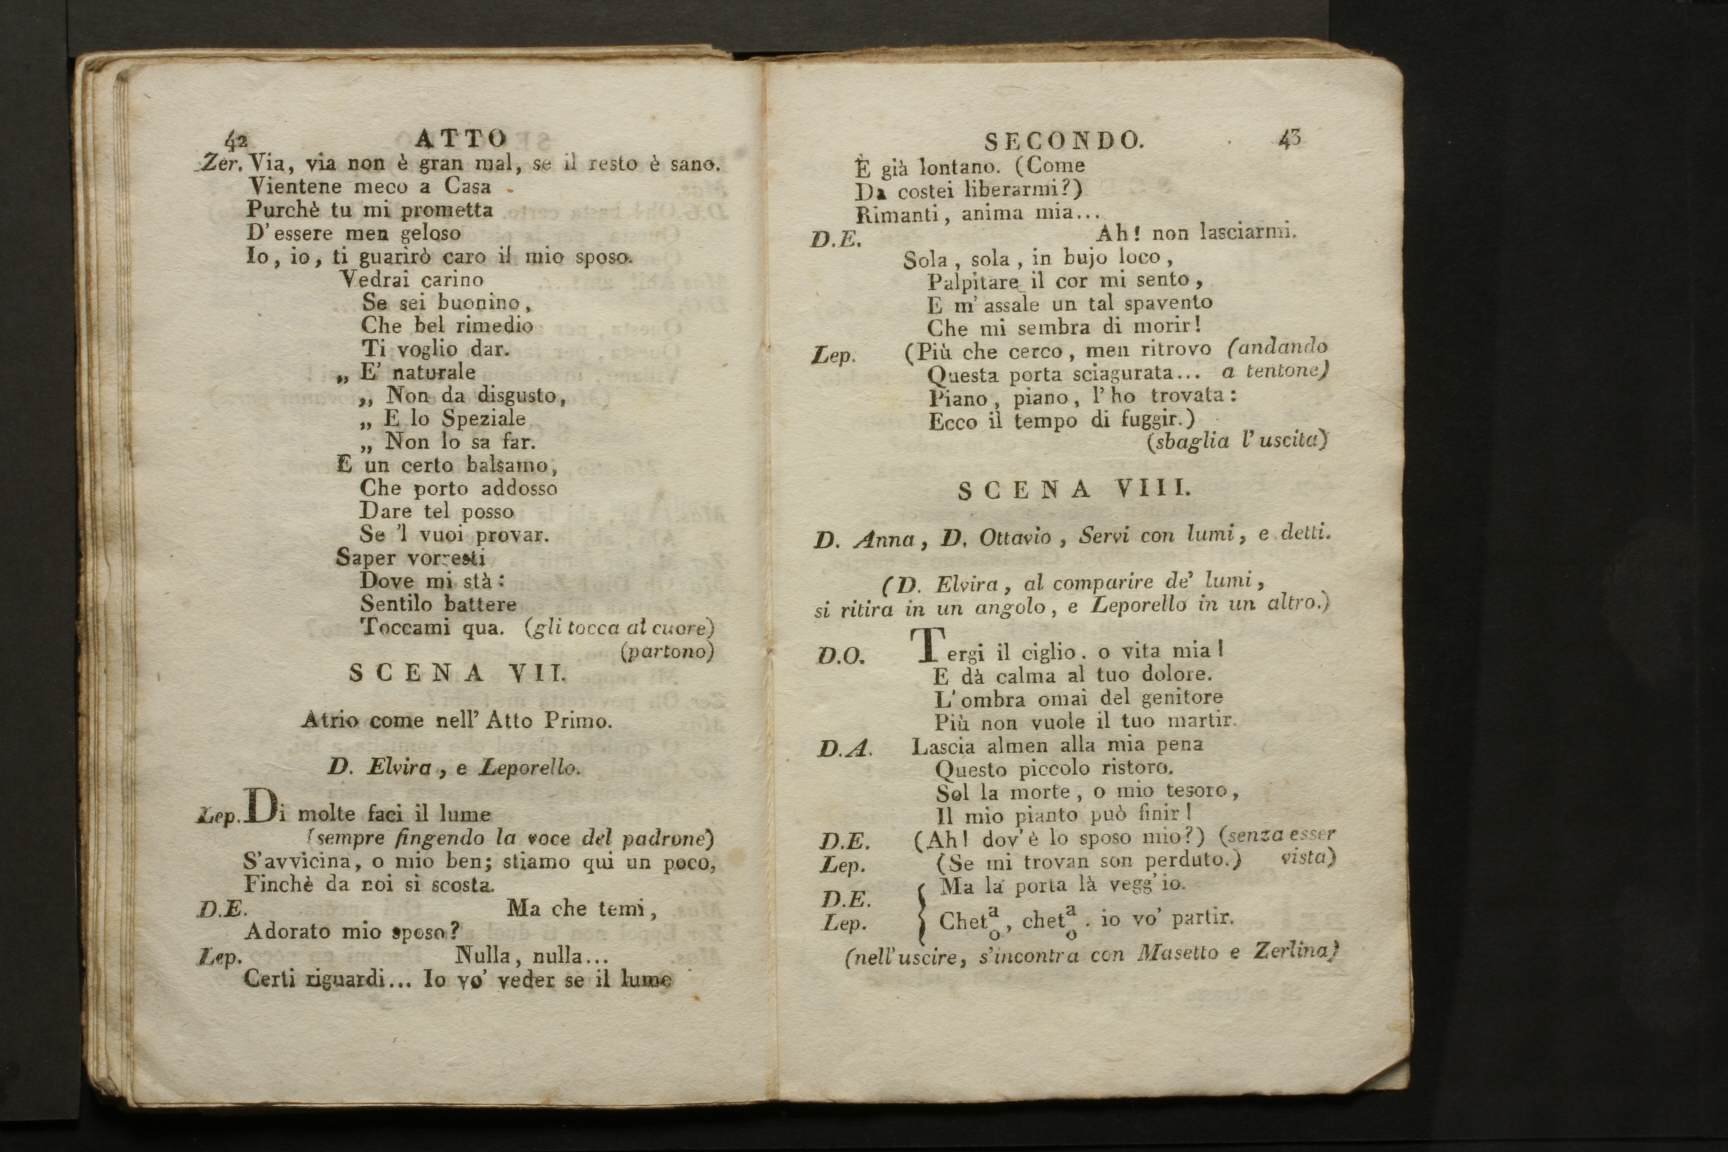 42 ATTO
Zer. Via, via non è gran mal, se il resto è sano.
Vientene meco a Casa
Purchè tu mi prometta
D'essere men geloso
Io, io, ti guarirò caro il mio sposo.
Vedrai carino
Se sei buonino,
Che bel rimedio
Ti voglio dar.
„ E' naturale
„ Non da disgusto,
„ E lo Speziale
„ Non lo sa far.
E un certo balsamo,
Che porto addosso
Dare tel posso
Se 'l vuoi provar.
Saper vorresti
Dove mi stà:
Sentilo battere
Toccami qua. (gli tocca al cuore)
(partono)
SCENA VII.
Atrio come nell' Atto Primo.
D. Elvira, e Leporello.
Lep. Di molte faci il lume
(sempre fingendo la voce del padrone)
S'avvicina, o mio ben; stiamo qui un poco,
Finchè da noi si scosta.
D.E. Ma che temi,
Adorato mio sposo?
Lep. Nulla, nulla...
Certi riguardi... Io vo' veder se il lume
SECONDO. 43
È già lontano. (Come
Da costei liberarmi?)
Rimanti, anima mia...
D.E. Ah! non lasciarmi.
Sola, sola, in bujo loco,
Palpitare il cor mi sento,
E m'assale un tal spavento
Che mi sembra di morir!
Lep. (Più che cerco, men ritrovo (andando
Questa porta sciagurata... a tentone)
Piano, piano, l'ho trovata:
Ecco il tempo di fuggir.)
(sbaglia l'uscita)
SCENA VIII.
D. Anna, D. Ottavio, Servi con lumi, e detti.
(D. Elvira, al comparire de' lumi,
si ritira in un angolo, e Leporello in un altro.)
D.O. Tergi il ciglio. o vita mia!
E dà calma al tuo dolore.
L'ombra omai del genitore
Più non vuole il tuo martir.
D.A. Lascia almen alla mia pena
Questo piccolo ristoro.
Sol la morte, o mio tesoro,
Il mio pianto può finir!
D.E. (Ah! dov'è lo sposo mio?) (senza esser
Lep. (Se mi trovan son perduto.) vista)
D.E. { Ma la porta là vegg'io.
Lep. Chet a/o, chet a/o. io vo' partir.
(nell'uscire, s'incontra con Masetto e Zerlina)